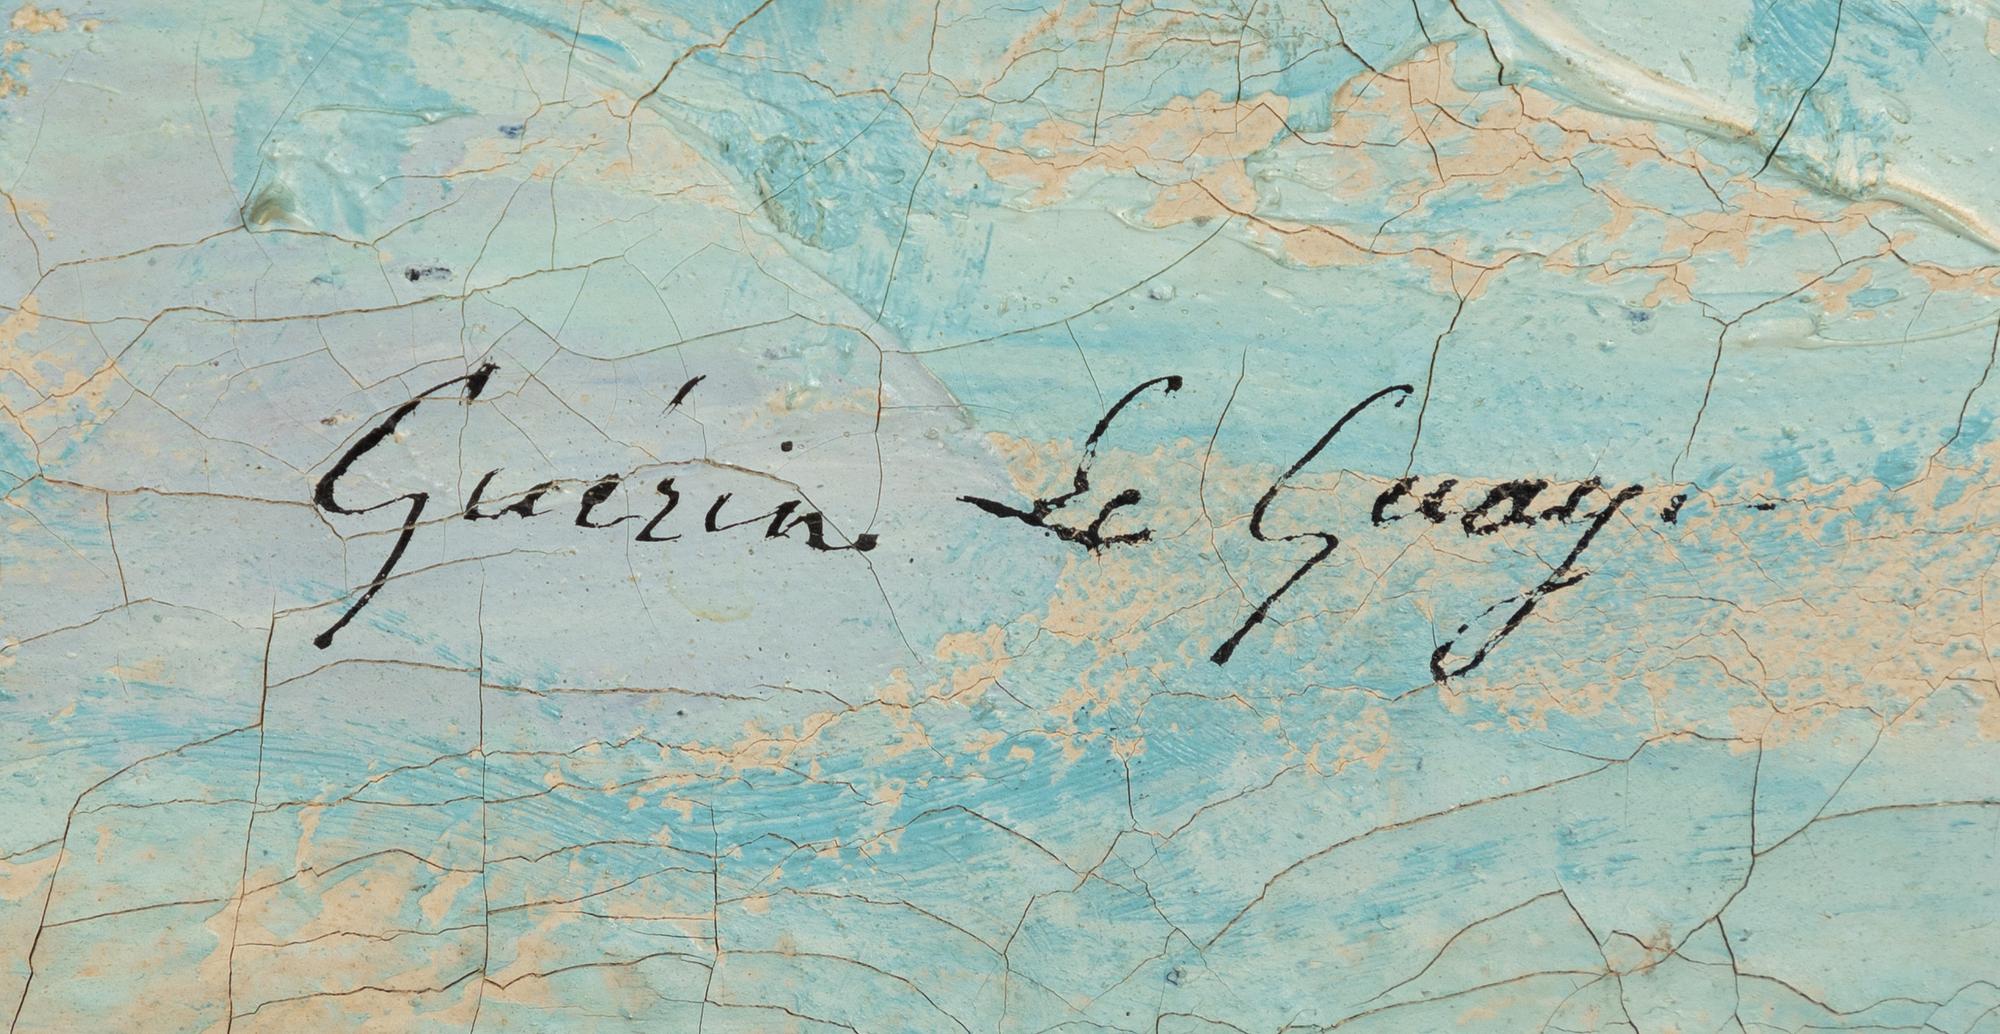 Guérin Le Guay